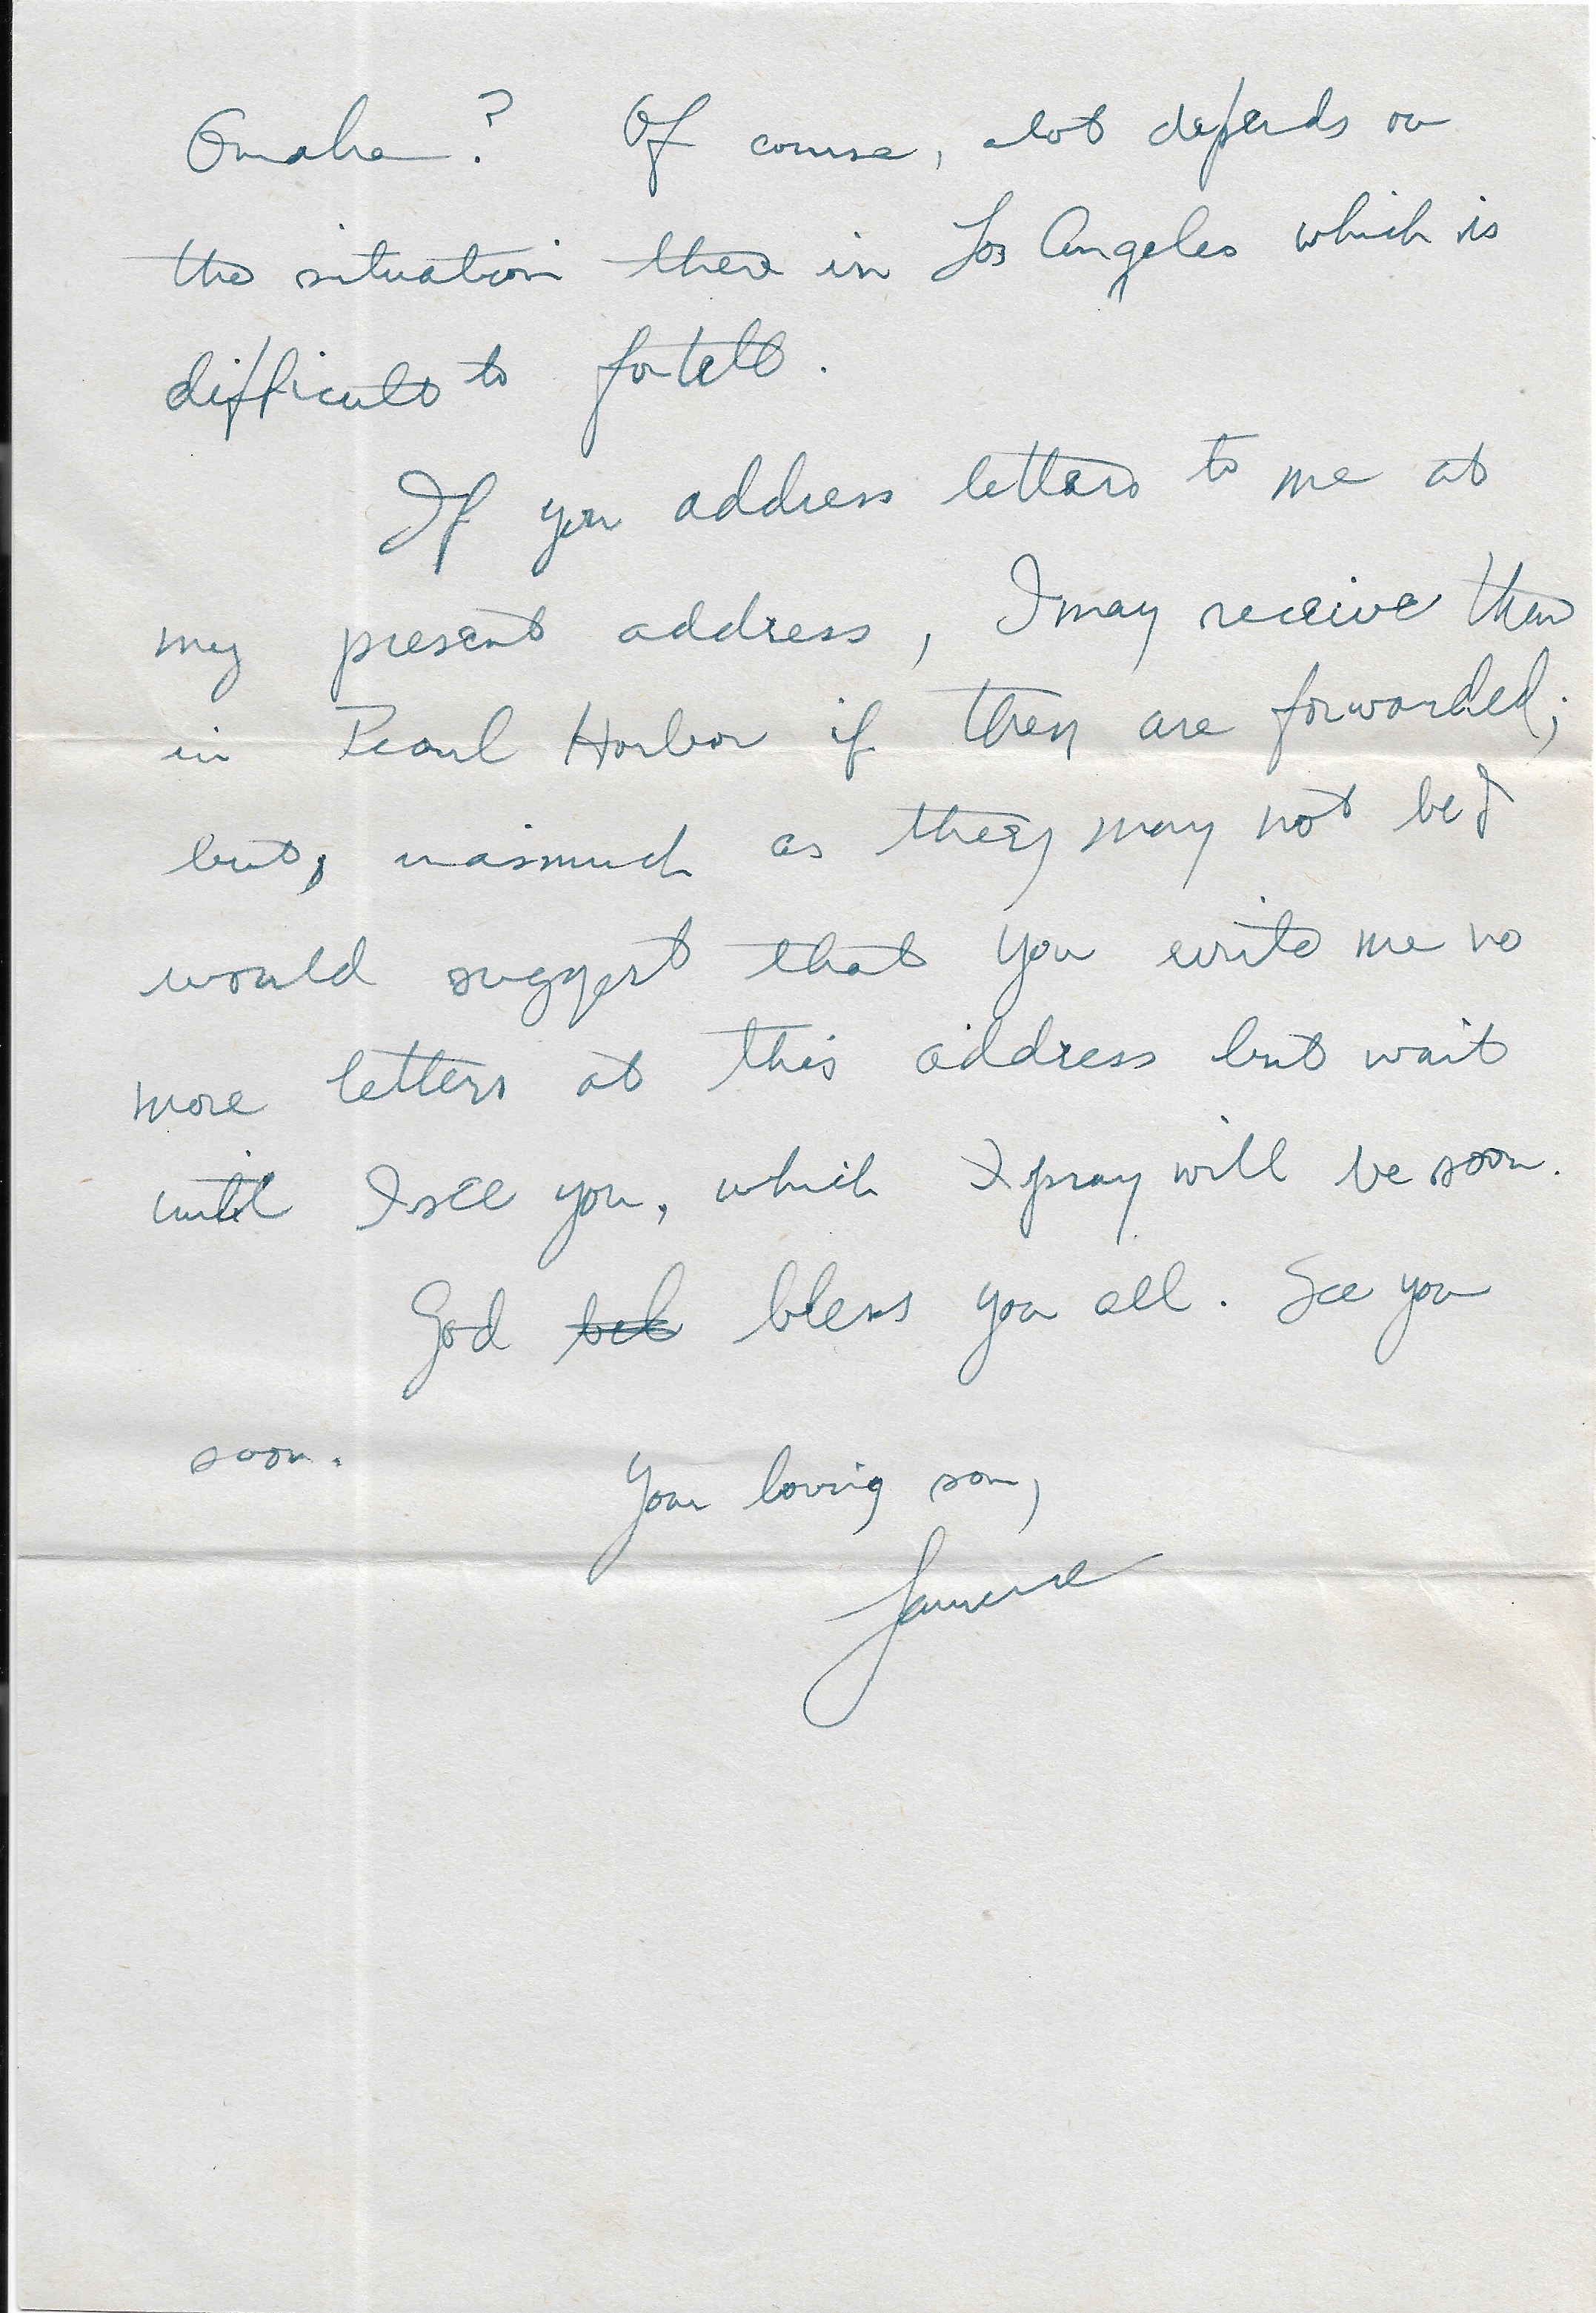 Omaha? Of course, alot depends on
the situation there in Los Angeles which is
difficult to fortell.
If you address letters to me at
my present address, I may receive them
in Pearl Harbor if they are forwarded;
but, inasmuch as they may not be I
would suggest that you write me no
more letters at this address but wait
until I see you, which I pray will be soon.
God bless you all. See you
soon.
Your loving son,
Lawrence